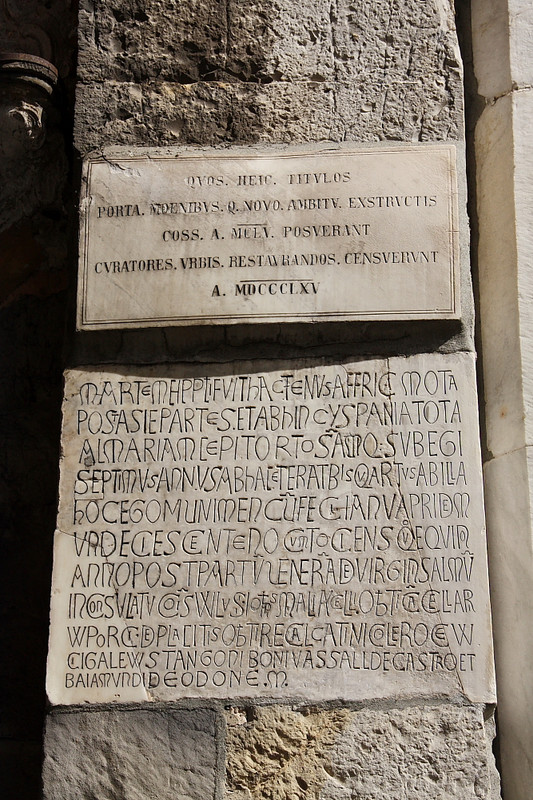 QVOS. HEIC. TITVLOS
PORTA. MOENIBVS. Q. NOVO. AMBITV. EXSTRVCTIS
COSS. A. MCLV. POSVERANT
CVRATORES. VRBIS. RESTAVRANDOS. CENSVERVNT
A. MDCCCLXV
MARTE MEI PPLI FVIT hACTENVS AFFRICA MOTA
POST ASIE PARTES ET AB hINC YSPANIA TOTA
ALMARIAM CEPI TORTOSAMQ SVBEGI
SEPTIMVS ANNVS AB hAC ET ERAT BIS QARTVS AB ILLA
hOC EGO MVNIMEN CV FECI IANVA PRIDEM
VNDECIES CENTENO CVM TOCIENS QVEQVINQ
ANNO POST PARTV VENERADE VIRGINIS ALMV
IN CONSVLATV
WPORC DE PLACITIS
CIGALE W STANGONI BONIVASSALL DE CASTRO ET
BAIAMVNDI DE ODONE M.